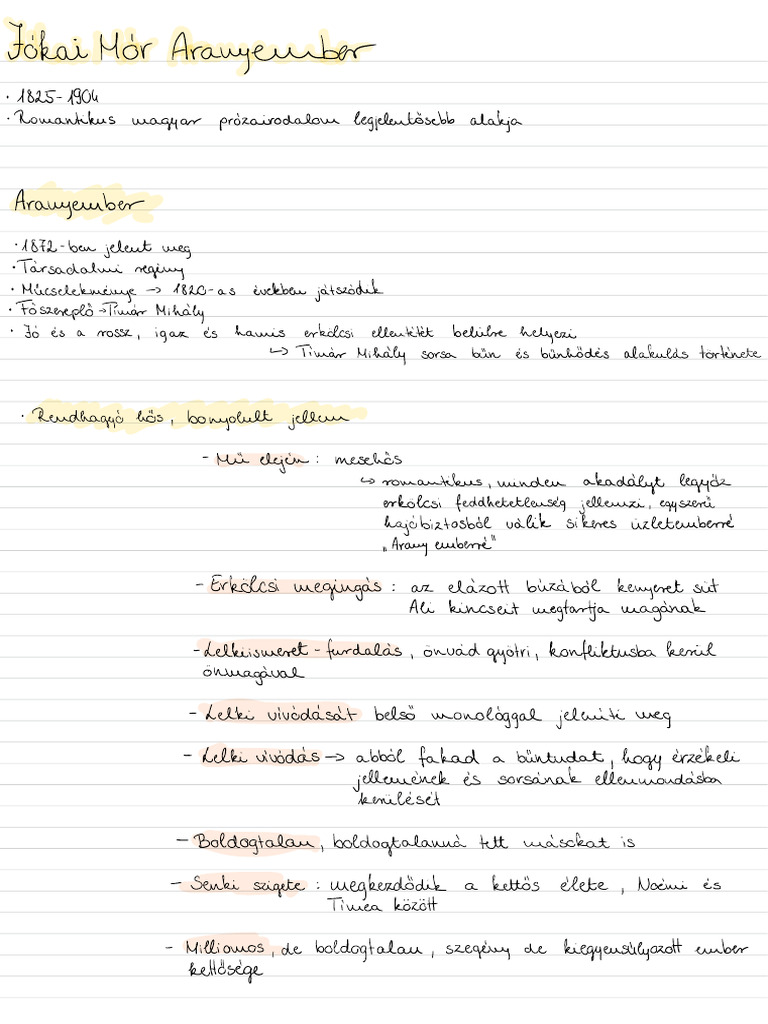 Jókai Mór Aranyember
· 1825-1904
· Romantikus magyar prózairodalom legjelentősebb alakja
Aranyember
· 1872-ben jelent meg
· Társadalmi regény
· Műcselekménye → 1820-as években játszódik
· Főszereplő → Tímár Mihály
· Jó és a rossz, igaz és hamis erkölcsi ellentétét belülre helyezi
↳ Tímár Mihály sorsa bűn és bűnhődés alakulás története
· Rendhagyó hős, bonyolult jellem
- Mű elején : mesehős
↳ romantikus, minden akadályt legyőz
erkölcsi feddhetetlenség jellemzi, egyszerű
hajóbiztosból válik sikeres üzletemberré
„Arany emberré"
- Erkölcsi megingás : az elázott búzából kenyeret süt
Ali kincseit megtartja magának
- Lelkiismeret-furdalás, önvád gyötri, konfliktusba kerül
önmagával
- Lelki vívódását belső monológgal jeleníti meg
- Lelki vívódás → abból fakad a bűntudat, hogy érzékeli
jellemének és sorsának ellenmondásba
kerülését
- Boldogtalan, boldogtalanná tett másokat is
- Senki szigete : megkezdődik a kettős élete, Noémi és
Tímea között
- Milliomos, de boldogtalan, szegény de kiegyensúlyozott ember
kettősége